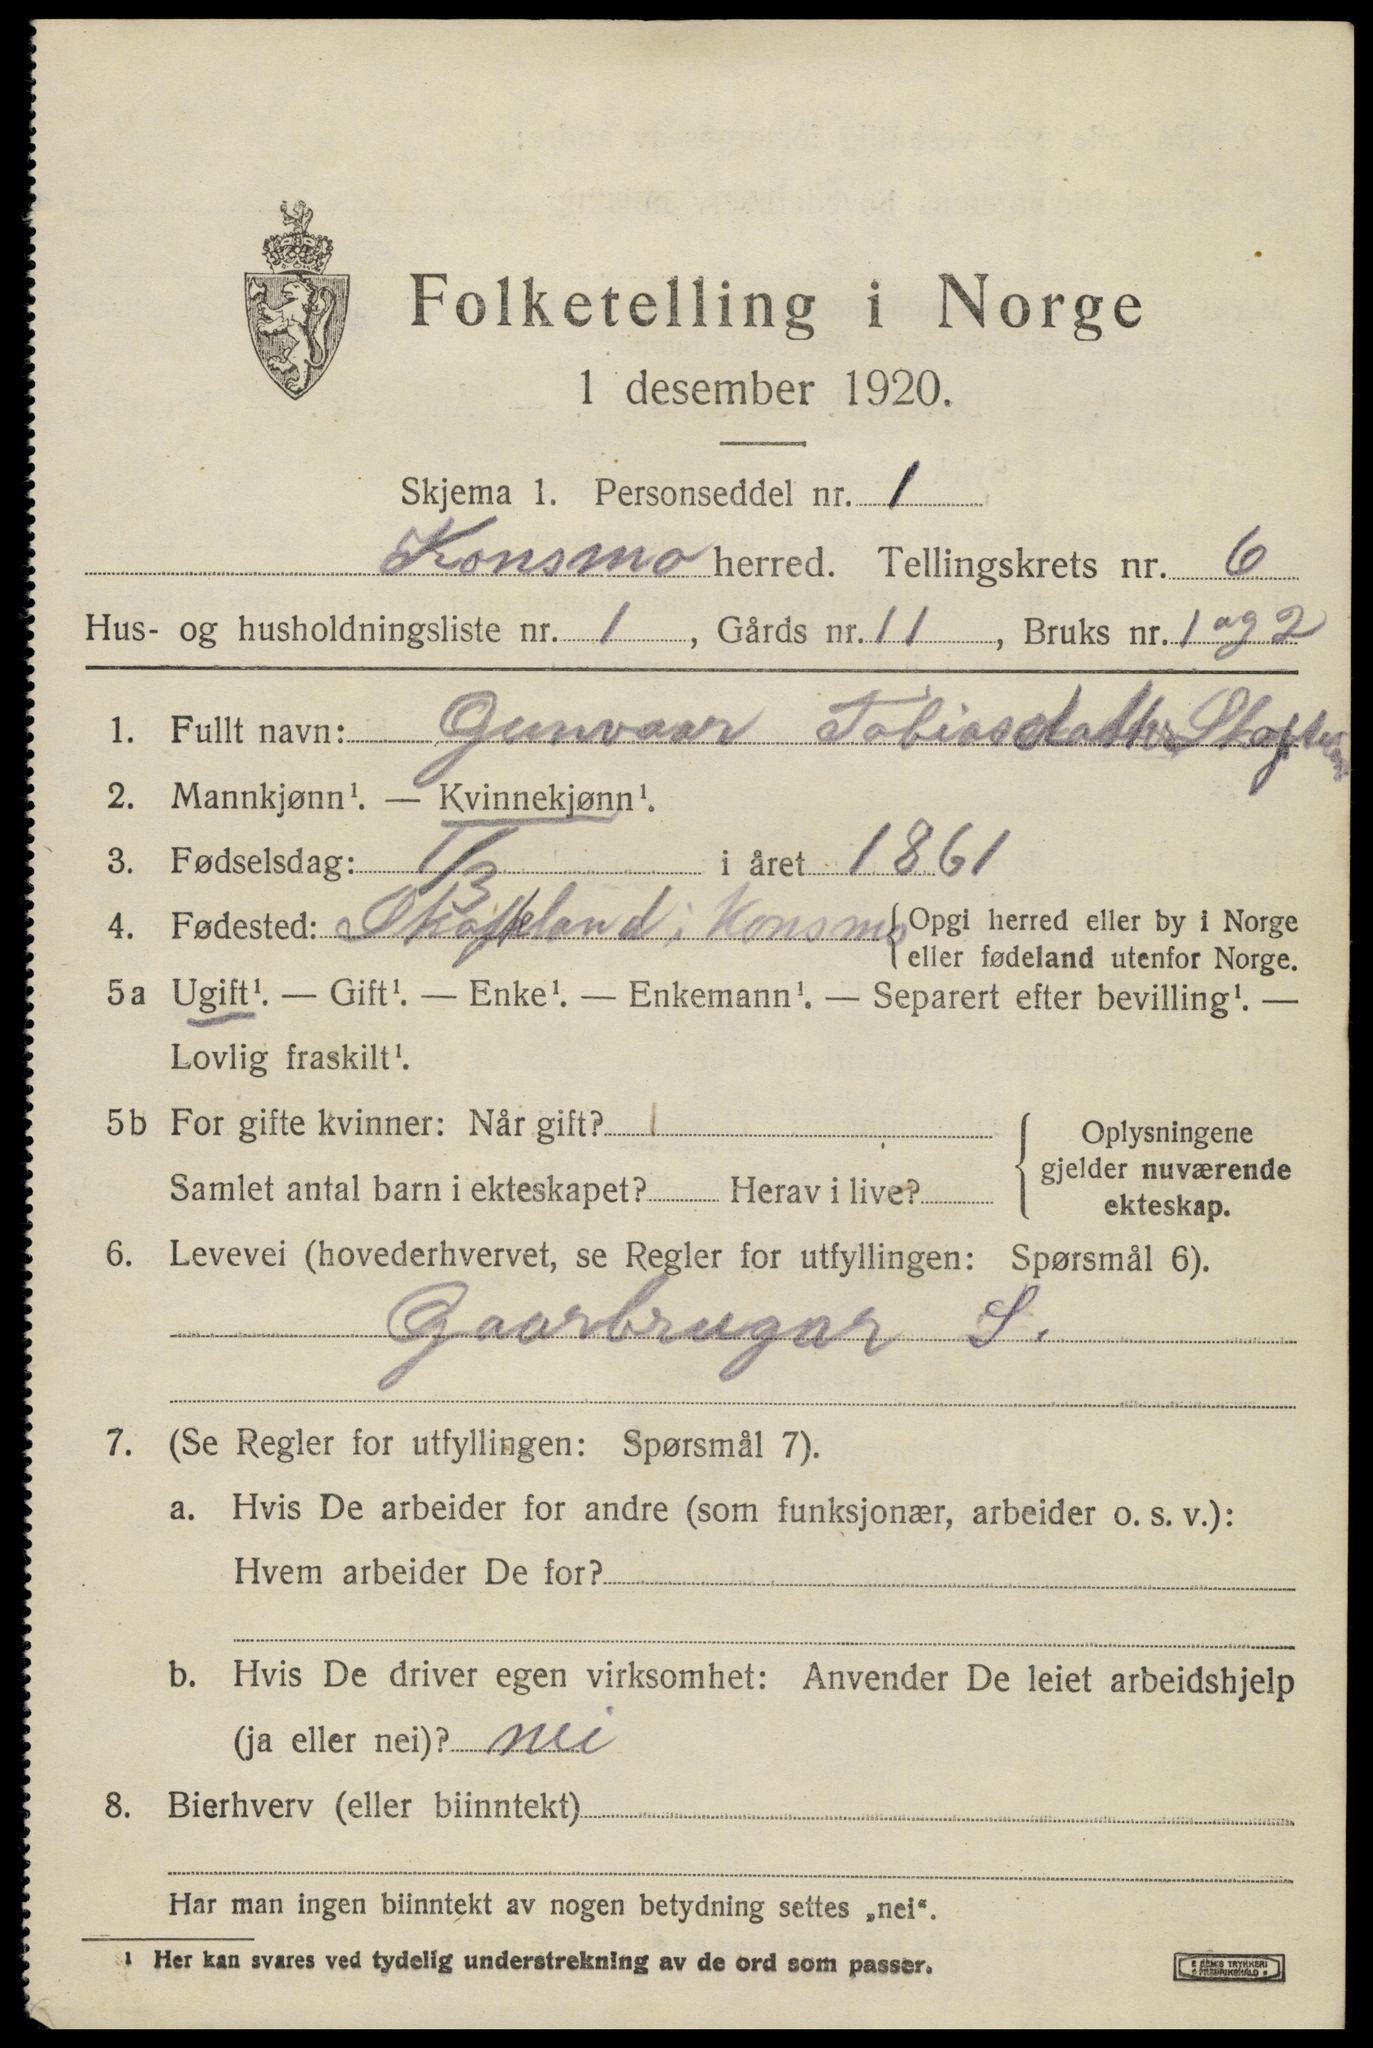 Folketelling i Norge
1 desember 1920.
Skjema 1. Personseddel nr. 1
Konsmo herred. Tellingskrets nr. 6
Hus- og husholdningsliste nr. 1, Gårds nr. 11, Bruks nr. 1 og 2
1. Fullt navn: Gunvaar Tobiasdatter
2. Mannkjønn¹. — Kvinnekjønn¹.
3. Fødselsdag: 1/3 i året 1861
4. Fødested: i Konsmo {Opgi herred eller by i Norge
eller fødeland utenfor Norge.
5a Ugift¹. — Gift¹. — Enke¹. — Enkemann¹. — Separert efter bevilling¹. —
Lovlig fraskilt¹.
5b For gifte kvinner: Når gift?
Samlet antal barn i ekteskapet? Herav i live?
Oplysningene
gjelder nuværende
ekteskap.
6. Levevei (hovederhvervet, se Regler for utfyllingen: Spørsmål 6).
Gaarbrugar S.
7. (Se Regler for utfyllingen: Spørsmål 7).
a. Hvis De arbeider for andre (som funksjonær, arbeider o. s. v.):
Hvem arbeider De for?
b. Hvis De driver egen virksomhet: Anvender De leiet arbeidshjelp
(ja eller nei)? nei
8. Bierhverv (eller biinntekt)
Har man ingen biinntekt av nogen betydning settes „nei“.
¹ Her kan svares ved tydelig understrekning av de ord som passer.
TRYKKERI
FREDRIKSHALD